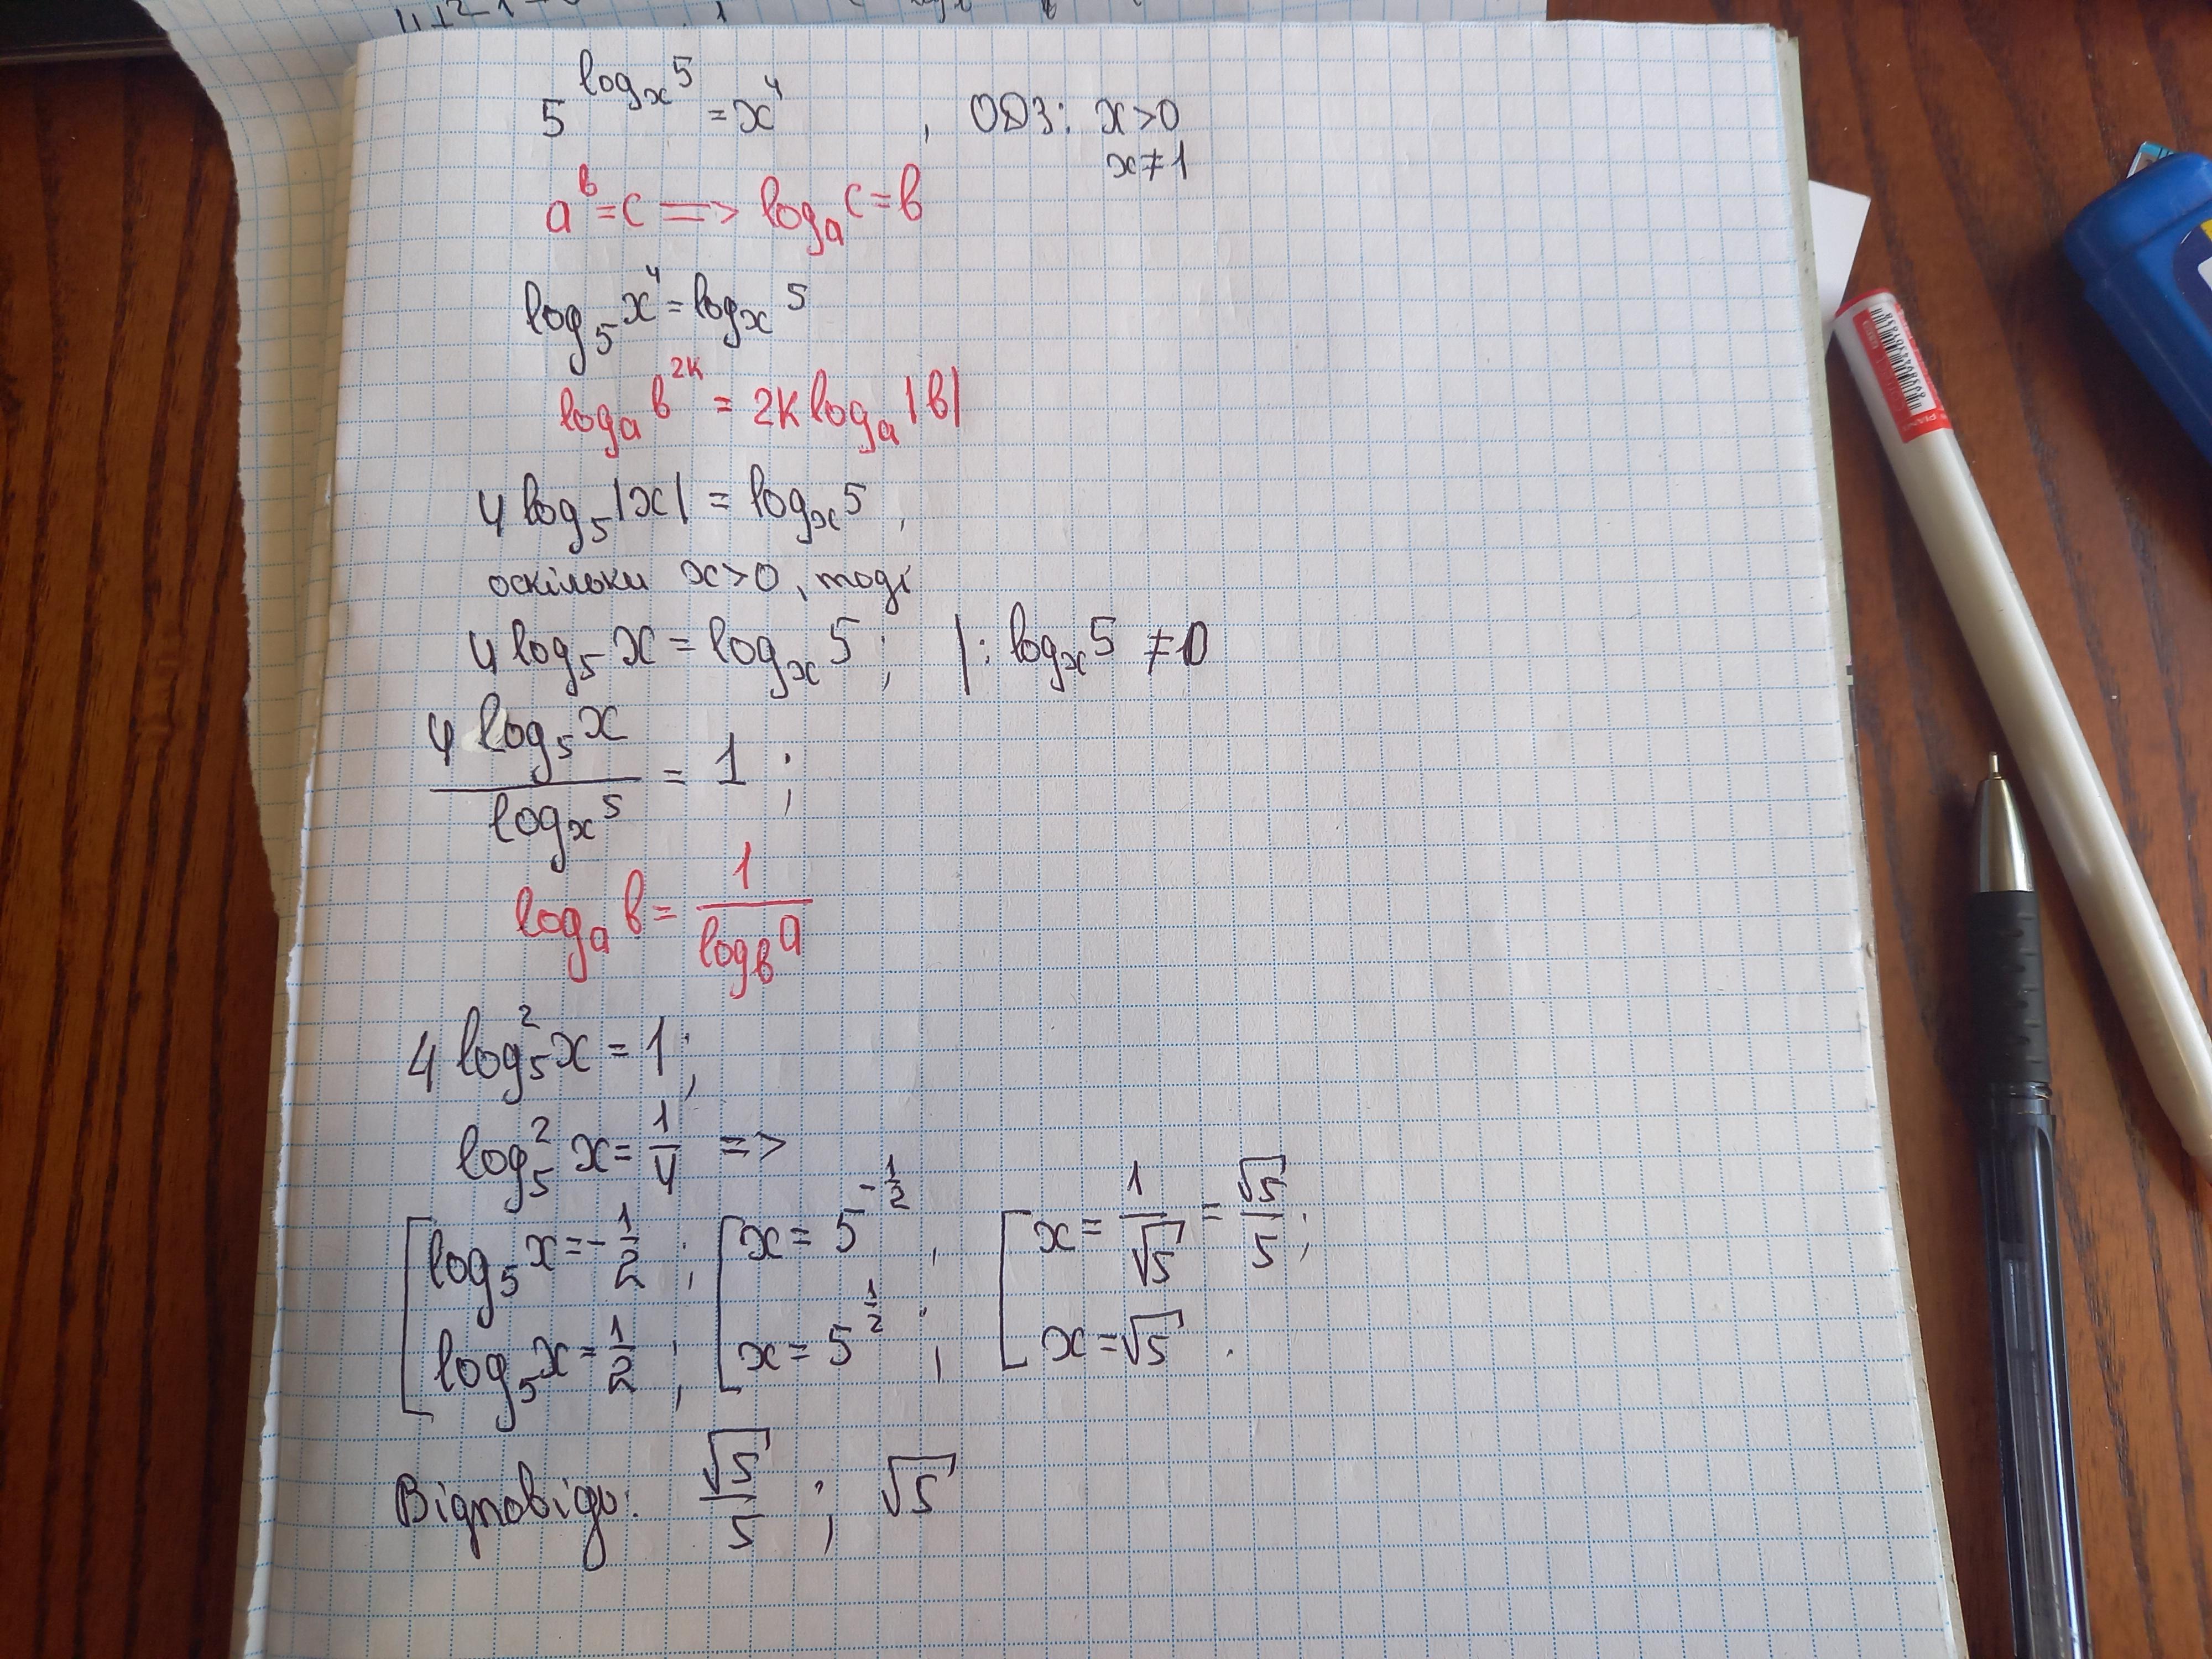 5^{log_x 5} = x^4 , ОДЗ: x>0
x≠1
a^b = c => log_a c = b
log_5 x^4 = log_x 5
log_a b^{2k} = 2k log_a |b|
4 log_5 |x| = log_x 5 ,
оскільки x>0, тоді
4 log_5 x = log_x 5 ; |: log_x 5 ≠ 0
\frac{4 log_5 x}{log_x 5} = 1 ;
log_a b = \frac{1}{log_b a}
4 log_5^2 x = 1 ;
log_5^2 x = \frac{1}{4} =>
[ log_5 x = -\frac{1}{2} ; [ x = 5^{-\frac{1}{2}} , [ x = \frac{1}{√5} = \frac{√5}{5} ;
log_5 x = \frac{1}{2} ; x = 5^{\frac{1}{2}} ; x = √5 .
Відповідь: \frac{√5}{5} ; √5